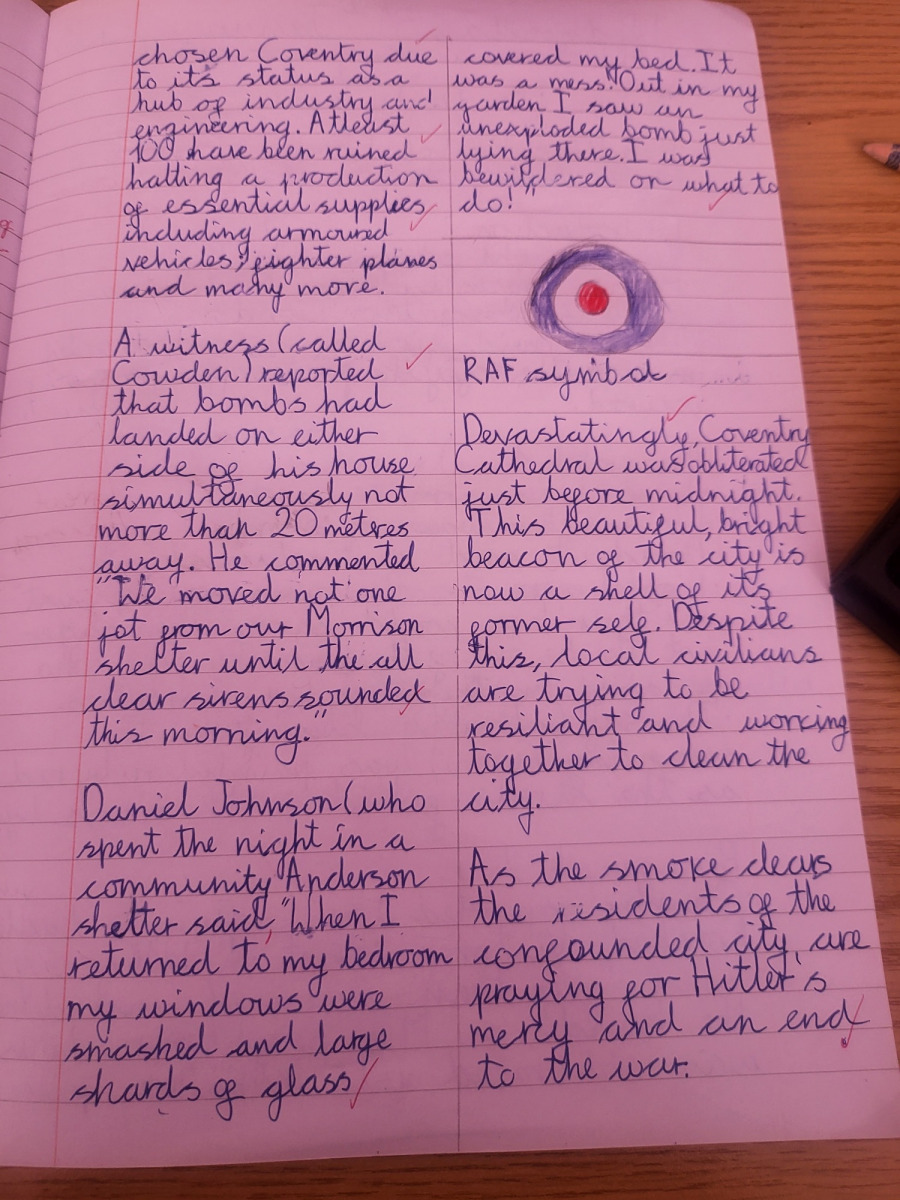 chosen Coventry due
to it's status as a
hub of industry and
engineering. Atleast
100 have been ruined
halting a production
of essential supplies
including armoured
vehicles, fighter planes
and many more.
A witness (called
Cowden) reported
that bombs had
landed on either
side of his house
simultaneously not
more than 20 metres
away. He commented
"We moved not one
jot from our Morrison
shelter until the all
clear sirens sounded
this morning."
Daniel Johnson (who
spent the night in a
community Anderson
shelter said, "When I
returned to my bedroom
my windows were
smashed and large
shards of glass
covered my bed. It
was a mess! Out in my
garden I saw an
unexploded bomb just
lying there. I was
bewildered on what to
do!"
RAF symbol
Devastatingly, Coventry
Cathedral was obliterated
just before midnight.
This beautiful, bright
beacon of the city is
now a shell of its
former self. Despite
this, local civilians
are trying to be
resiliant and working
together to clean the
city.
As the smoke clears
the residents of the
confounded city are
praying for Hitler's
mercy and an end
to the war.